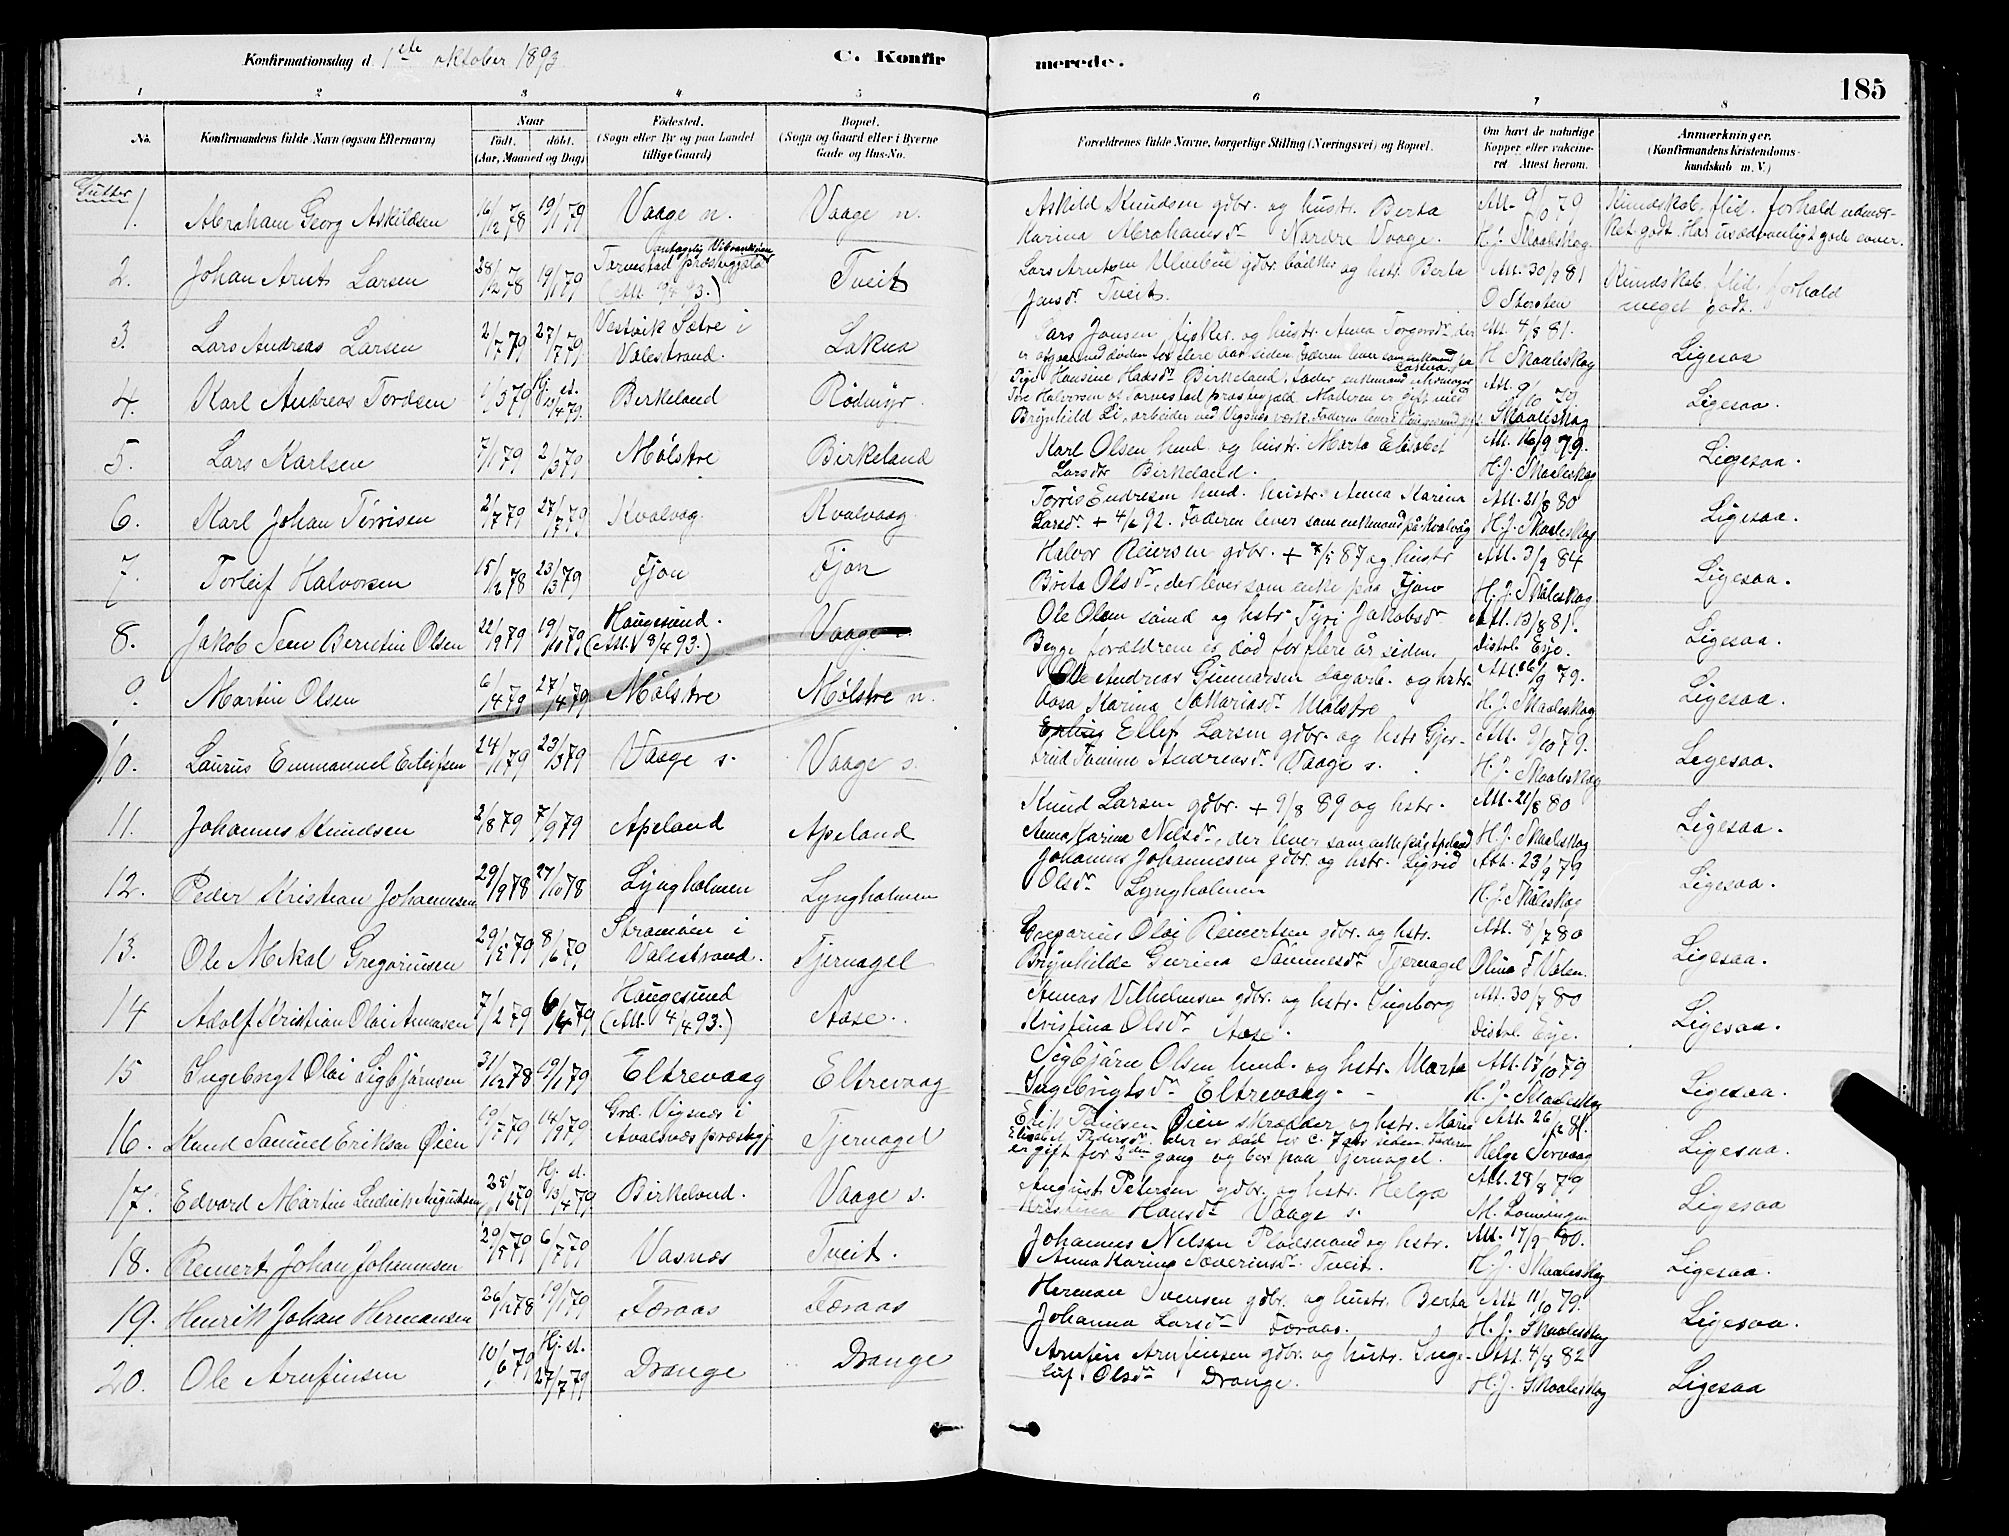 Konfirmationsdag d. 1ste oktober 1893
C. Konfirmerede.
185
1 2 3 4 5 6 7 8
No.
Konfirmandens fulde Navn (ogsaa Efternavn)
Naar
født. døbt.
(Aar, Maaned og Dag)
Fødested.
(Sogn eller By og paa Landet
tillige Gaard)
Bopæl.
(Sogn og Gaard eller i Byerne
Gade og Hus-No.
Forældrenes fulde Navne, borgerlige Stilling (Næringsvei) og Bopæl.
Om havt de naturlige
Kopper eller vakcine-
ret Attest herom.
Anmærkninger.
(Konfirmandens Kristendoms-
kundskab m. V.)
Gutter
1. Abraham Georg Askildsen 16/12 78 19/1 79 Vaage n. Vaage n.
Askild Knudsen gdbr. og hustr. Berta
Karina Abrahamsdr Nordre Vaage.
Att. 9/10 79
H.J. Skaaleskog
Kundskab, flid, forhold udmær-
ket godt. Har usædvanligt gode evner.
2. Johan Arnt Larsen 28/12 78 19/1 79 Tveit
Lars Arntsen Ulvebne gdbr. bødker og hstr. Berta
Jensdr Tveit.
Att. 30/9 81
O Storsten
Kundskab, flid, forhold
meget godt.
3. Lars Andreas Larsen 2/7 79 27/7 79 Vestvik Sætre i
Valestrand. Lakna
Lars Jonsen fisker og hustr. Anna Torgersdr der
er afgaaet ved døden for flere aar siden Faderen lever som enkemand paa
Lakna.
Att. 4/8 81.
H Skaaleskog
Ligesaa
4. Karl Andreas Tordsen 1/3 79 Hj. d. 13/4 79. Birkeland Rødmyr
Pige Hansine Hansdr Birkeland, fader enkemand
Tore Halvorsen af Tornestad præstegjæld Moderen er gift med
Brynhild Li, arbeider ved Vigsnæs værk.
Att. 9/10 79
Skaaleskog
Ligesaa.
5. Lars Karlsen 7/1 79 2/3 79 Mølstre Birkeland
Karl Olsen husd. og hustr. Marta Elisabet
Larsdr Birkeland.
Att. 16/9 79.
H.J. Skaaleskog
Ligesaa.
6. Karl Johan Tørrisen 2/7 79 27/7 79 Kvalvag. Kvalvaag
Tørris Endresen husd. hustr. Anna Karina
Larsdr + 4/6 92. Faderen lever som enkemand på Kvalvåg
Att. 21/8 80
H.J. Skaaleskog
Ligesaa.
7. Torleif Halvorsen 15/12 78 23/3 79 Fjon Fjon
Halvor Reiersen gdbr. + 7/5 87 og hustr
Brita Olsdr, der lever som enke paa Fjon
Att. 3/9 84
H.J. Skåleskog
Ligesaa.
8. Jakob Sem Berntin Olsen 22/9 79 19/10 79 Haugesund.
(Att. 8/4 93.) Vaage
Ole Olsen sømd og hstr. Tyri Jakobsdr
Begge forældrene er død for flere år siden.
Att. 13/8 81.
Distrl. Eije.
Ligesaa.
9. Martin Olsen 6/4 79 27/4 79 Mølstre Mølstre n.
Ole Andreas Gunnarsen dagarb. og hstr.
Aasa Karina Sakariasdr Mølstre
Att. 16/9 79.
H.J. Skaaleskog
Ligesaa.
10. Laurus Emmanuel Eilefsen 24/1 79 23/3 79 Vaage s. Vaage s.
Ellef Larsen gdbr. og hstr Gjer-
trud Tomine Andreasdr Vaage s.
Att. 9/10 79.
H.J. Skaaleskog
Ligesaa.
11. Johannes Knudsen 2/8 79 7/9 79 Apeland Apeland
Knud Larsen gdbr. + 9/8 89 og hstr.
Anna Karina Nilsdr, der lever som enke på Apeland
Att. 21/8 80
H.J. Skaaleskog
Ligesaa.
12. Peder Kristian Johannesen 29/9 78 27/10 78 Lyngholmen Lyngholmen
Johannes Johannesen gdbr. og hstr. Sigrid
Olsdr Lyngholmen
Att. 23/9 79
H.J. Skåleskog
Ligesaa.
13. Ole Mikal Gregoriusen 29/5 79 8/6 79. Strømøen i
Valestrand. Tjernagel
Gregorius Olai Reinertsen gdbr. og hstr.
Brynhilde Gurina Tommesdr Tjernagel
Att. 8/7 80
Olina F Valen.
Ligesaa.
14 Adolf Kristian Olai Annasen 7/2 79 6/4 79 Haugesund
(Att. 4/4 93.) Aase.
Annas Vilhelmsen gdbr. og hstr. Ingeborg
Kristina Olsdr Aase.
Att. 30/7 80
Distrl. Eije.
Ligesaa.
15 Ingebrigt Olai Sigbjørnsen 31/12 78 19/1 79 Eltrevaag Eltrevaag
Sigbjørn Olsen husd. og hstr. Marta
Ingebrigtsdr Eltrevaag.
Att. 17/10 79
H.J. Skaaleskog
Ligesaa.
16. Knud Samuel Eriksen Øien 19/5 79 14/9 79 Grd. Vigsnæs i
Avalsnæs præstegj. Tjernagel
Erik Poulsen Øien skrædder og hstr. Marie
Elisabet Pedersdr. der er død for c. 7 aar siden. Faderen
er gift for 2den gang og bor paa Tjernagel.
Att. 26/12 81.
Helge Torvaag
Ligesaa.
17. Edvard Martin Ludvik Augustsen 25/12 79 Hj. d. 13/4 79. Birkeland. Vaage s.
August Petersen gdbr. og hstr. Helga
Kristina Hansdr Vaage s.
Att. 28/8 79
Ligesaa
18. Reinert Johan Johannesen 29/5 79 6/7 79 Vasnæs Tveit.
Johannes Nilsen Pladsmand og hstr.
Anna Karina Severinsdr. Tveit.
Att. 17/9 80.
H.J. Skaaleskog
Ligesaa.
19. Henrik Johan Hermansen 26/11 78 19/1 79 Færaas Færaas
Herman Svensen gdbr. og hustr. Berta
Johanna Larsdr Færaas.
Att 11/10 79.
H.J. Skaaleskog
Ligesaa.
20. Ole Arnfinsen 10/6 79 Hj. d. 27/7 79 Drange Drange
Arnfin Arnfinsen gdbr. og hustr. Inge-
lief Olsdr Drange.
Att. 4/8 82
H.J. Skaaleskog
Ligesaa